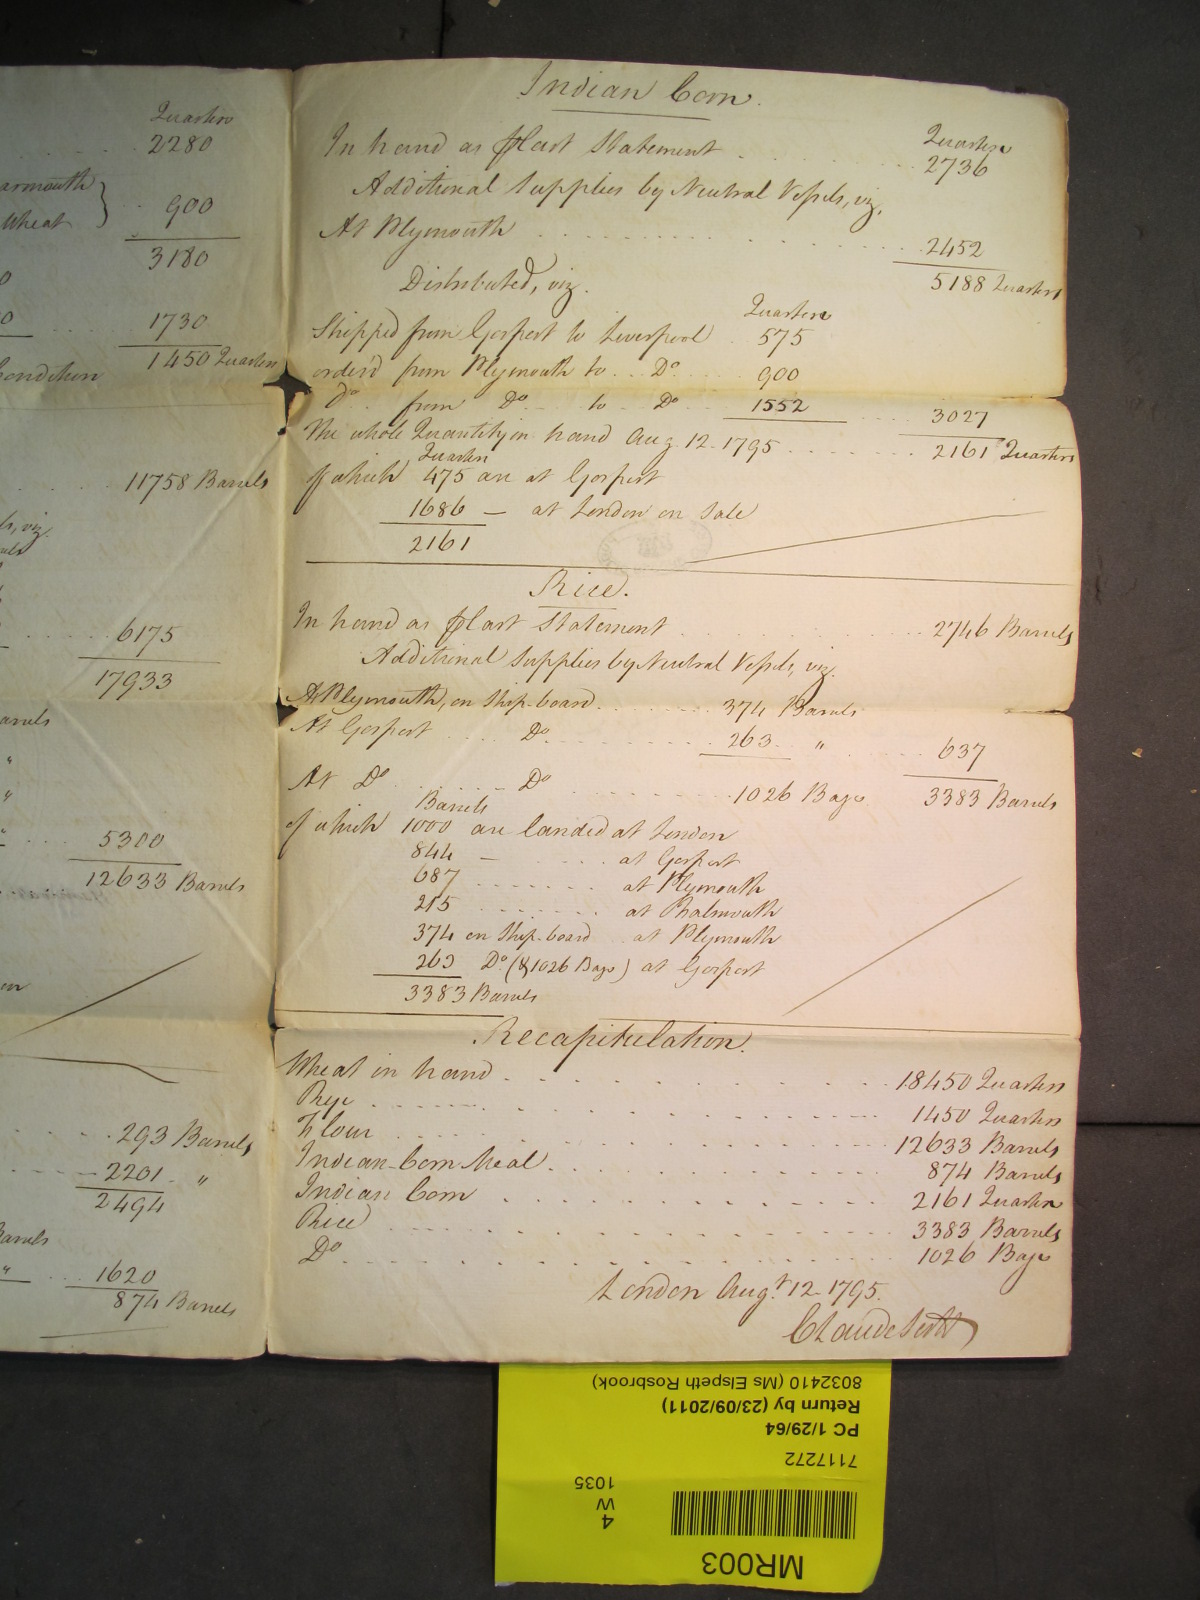 Quarters
2280
armouth
Wheat } 900
3180
0
0 1730
1450 Quarters
Condition
11758 Barrels
ls, viz.
6175
17933
arrels
"
"
" 5300
12633 Barrels
293 Barrels
2201 "
2494
Barrels
" 1620
874 Barrels
Indian Corn.
Quarters
In hand as p last Statement 2736
Additional Supplies by Neutral Vessels, viz.
At Plymouth 2452
5188 Quarters
Distributed, viz.
Quarters
Shipped from Gosport to Liverpool 575
order'd from Plymouth to Do 900
Do from Do to Do 1552 3027
The whole Quantity on hand Aug. 12. 1795 2161 Quarters
Quarters
of which 475 are at Gosport
1686 — at London on Sale
2161
Rice.
In hand as p last Statement 2746 Barrels
Additional Supplies by Neutral Vessels, viz.
At Plymouth, on Ship-board 374 Barrels
At Gosport Do 263 " 637
3383 Barrels
At Do Do 1026 Bags
Barrels
of which 1000 are landed at London
844 — at Gosport
687 at Plymouth
215 at Falmouth
374 on Ship-board at Plymouth
263 Do (& 1026 Bags) at Gosport
3383 Barrels
Recapitulation.
Wheat in hand 18450 Quarters
Rye 1450 Quarters
Flour 12633 Barrels
Indian-Corn Meal 874 Barrels
Indian Corn 2161 Quarters
Rice 3383 Barrels
Do 1026 Bags
London Augt. 12. 1795.
Claude Scott
MR003
4
W
1035
7117272
PC 1/29/64
Return by (23/09/2011)
8032410 (Ms Elspeth Rosbrook)